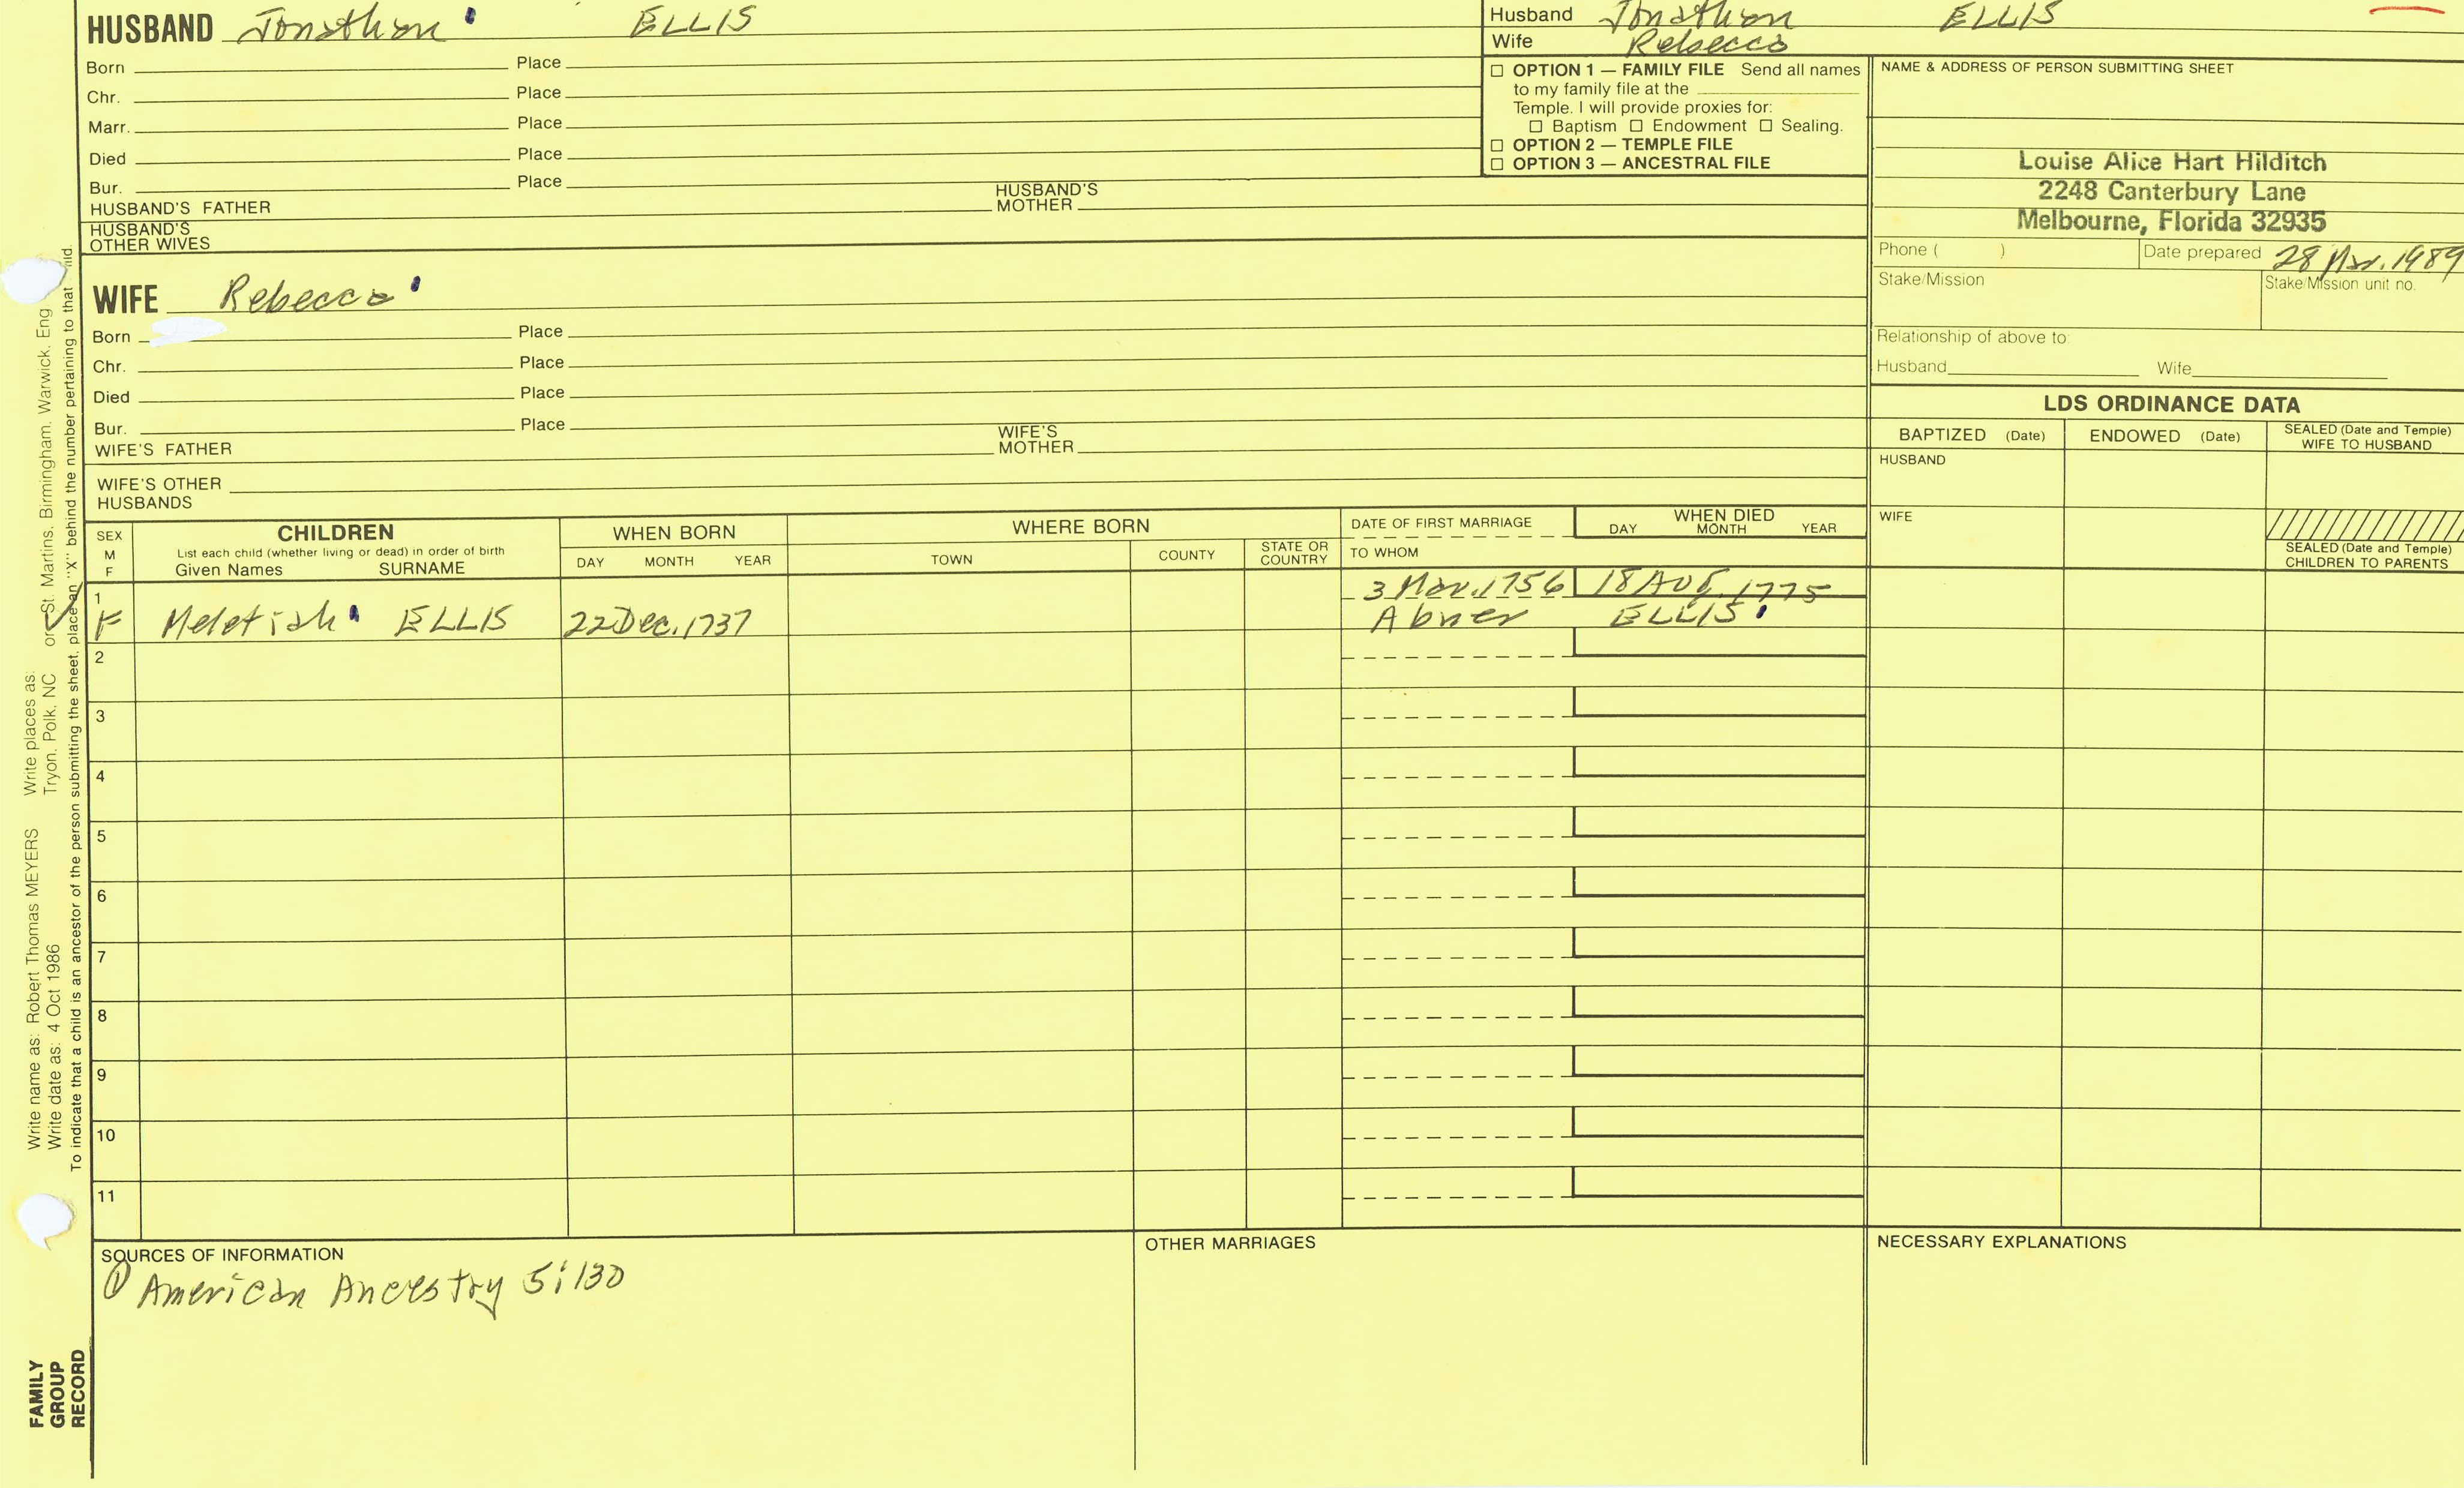 HUSBAND Jonathan ELLIS
Born Place
Chr. Place
Marr. Place
Died Place
Bur. Place
HUSBAND'S FATHER HUSBAND'S MOTHER
HUSBAND'S
OTHER WIVES
WIFE Rebecca
Born Place
Chr. Place
Died Place
Bur. Place
WIFE'S FATHER WIFE'S MOTHER
WIFE'S OTHER
HUSBANDS
Husband Jonathan ELLIS
Wife Rebecca
OPTION 1 — FAMILY FILE Send all names
to my family file at the
Temple. I will provide proxies for:
Baptism Endowment Sealing.
OPTION 2 — TEMPLE FILE
OPTION 3 — ANCESTRAL FILE
NAME & ADDRESS OF PERSON SUBMITTING SHEET
Louise Alice Hart Hilditch
2248 Canterbury Lane
Melbourne, Florida 32935
Phone ( ) Date prepared 28 Mar. 1989
Stake/Mission Stake/Mission unit no.
Relationship of above to:
Husband Wife
LDS ORDINANCE DATA
BAPTIZED (Date) ENDOWED (Date) SEALED (Date and Temple) WIFE TO HUSBAND
HUSBAND
WIFE
SEALED (Date and Temple)
CHILDREN TO PARENTS
SEX M F
CHILDREN
List each child (whether living or dead) in order of birth
Given Names SURNAME
WHEN BORN
DAY MONTH YEAR
WHERE BORN
TOWN COUNTY STATE OR COUNTRY
DATE OF FIRST MARRIAGE
TO WHOM
WHEN DIED
DAY MONTH YEAR
1 3 Mar. 1756 18 Aug. 1775
F Meletiah ELLIS 22 Dec. 1737 Abner ELLIS
2
3
4
5
6
7
8
9
10
11
SOURCES OF INFORMATION
① American Ancestry 5:130
OTHER MARRIAGES
NECESSARY EXPLANATIONS
Write name as: Robert Thomas MEYERS Write places as:
Write date as: 4 Oct 1986 Tryon, Polk, NC or St. Martins, Birmingham, Warwick, Eng
To indicate that a child is an ancestor of the person submitting the sheet, place an "X" behind the number pertaining to that
FAMILY
GROUP
RECORD